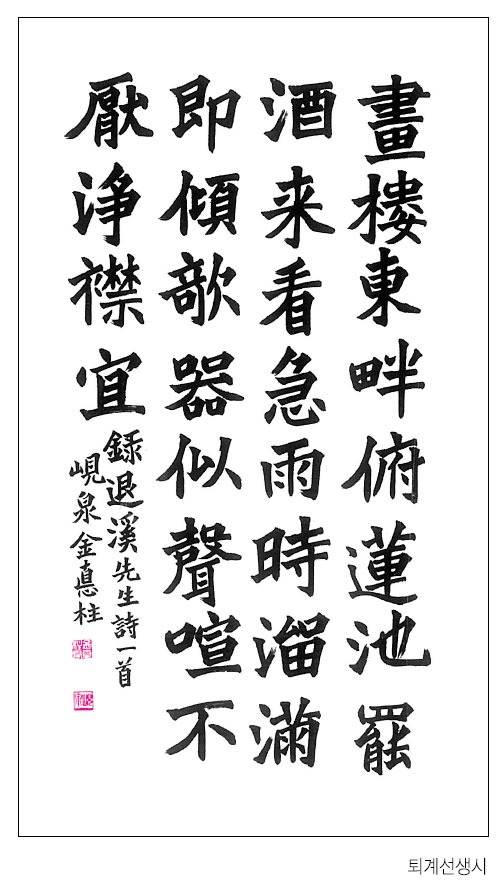 畫樓東畔俯蓮池罷
酒来看急雨時溜滿
即傾欹器似聲喧不
厭淨襟宜
錄退溪先生詩一首
峴泉金悳柱
퇴계선생시